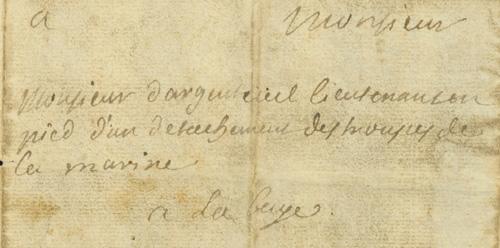 a Monsieur
Monsieur dargenteuil lieutenant en
pied d'un detachement des troupes de
la marine
a La baye.